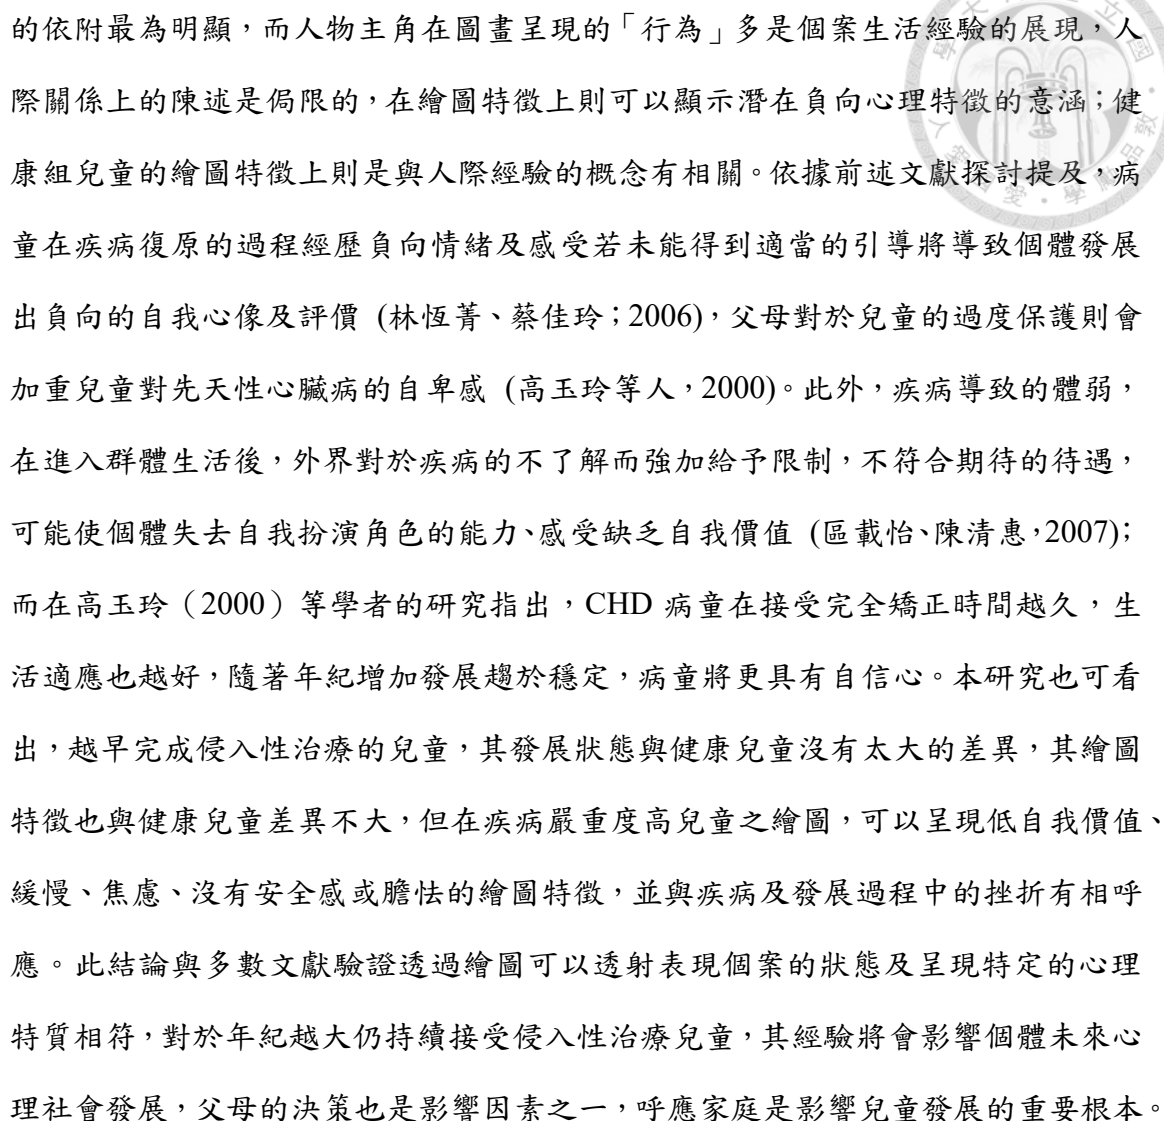 的依附最為明顯，而人物主角在圖畫呈現的「行為」多是個案生活經驗的展現，人
際關係上的陳述是侷限的，在繪圖特徵上則可以顯示潛在負向心理特徵的意涵；健
康組兒童的繪圖特徵上則是與人際經驗的概念有相關。依據前述文獻探討提及，病
童在疾病復原的過程經歷負向情緒及感受若未能得到適當的引導將導致個體發展
出負向的自我心像及評價 (林恆菁、蔡佳玲；2006)，父母對於兒童的過度保護則會
加重兒童對先天性心臟病的自卑感 (高玉玲等人，2000)。此外，疾病導致的體弱，
在進入群體生活後，外界對於疾病的不了解而強加給予限制，不符合期待的待遇，
可能使個體失去自我扮演角色的能力、感受缺乏自我價值 (區載怡、陳清惠，2007)；
而在高玉玲（2000）等學者的研究指出，CHD 病童在接受完全矯正時間越久，生
活適應也越好，隨著年紀增加發展趨於穩定，病童將更具有自信心。本研究也可看
出，越早完成侵入性治療的兒童，其發展狀態與健康兒童沒有太大的差異，其繪圖
特徵也與健康兒童差異不大，但在疾病嚴重度高兒童之繪圖，可以呈現低自我價值、
緩慢、焦慮、沒有安全感或膽怯的繪圖特徵，並與疾病及發展過程中的挫折有相呼
應。此結論與多數文獻驗證透過繪圖可以透射表現個案的狀態及呈現特定的心理
特質相符，對於年紀越大仍持續接受侵入性治療兒童，其經驗將會影響個體未來心
理社會發展，父母的決策也是影響因素之一，呼應家庭是影響兒童發展的重要根本。